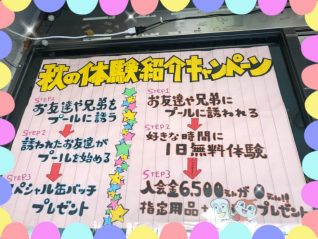 秋の体験紹介キャンペーン
STEP1
お友達や兄弟を
プールに誘う
STEP2
誘われたお友達が
プールを始める
STEP3
スペシャル缶バッチ
プレゼント
STEP1
お友達や兄弟に
プールに誘われる
STEP2
好きな時間に
1日無料体験
STEP3
入会金6500えんが
指定用品+
プレゼント